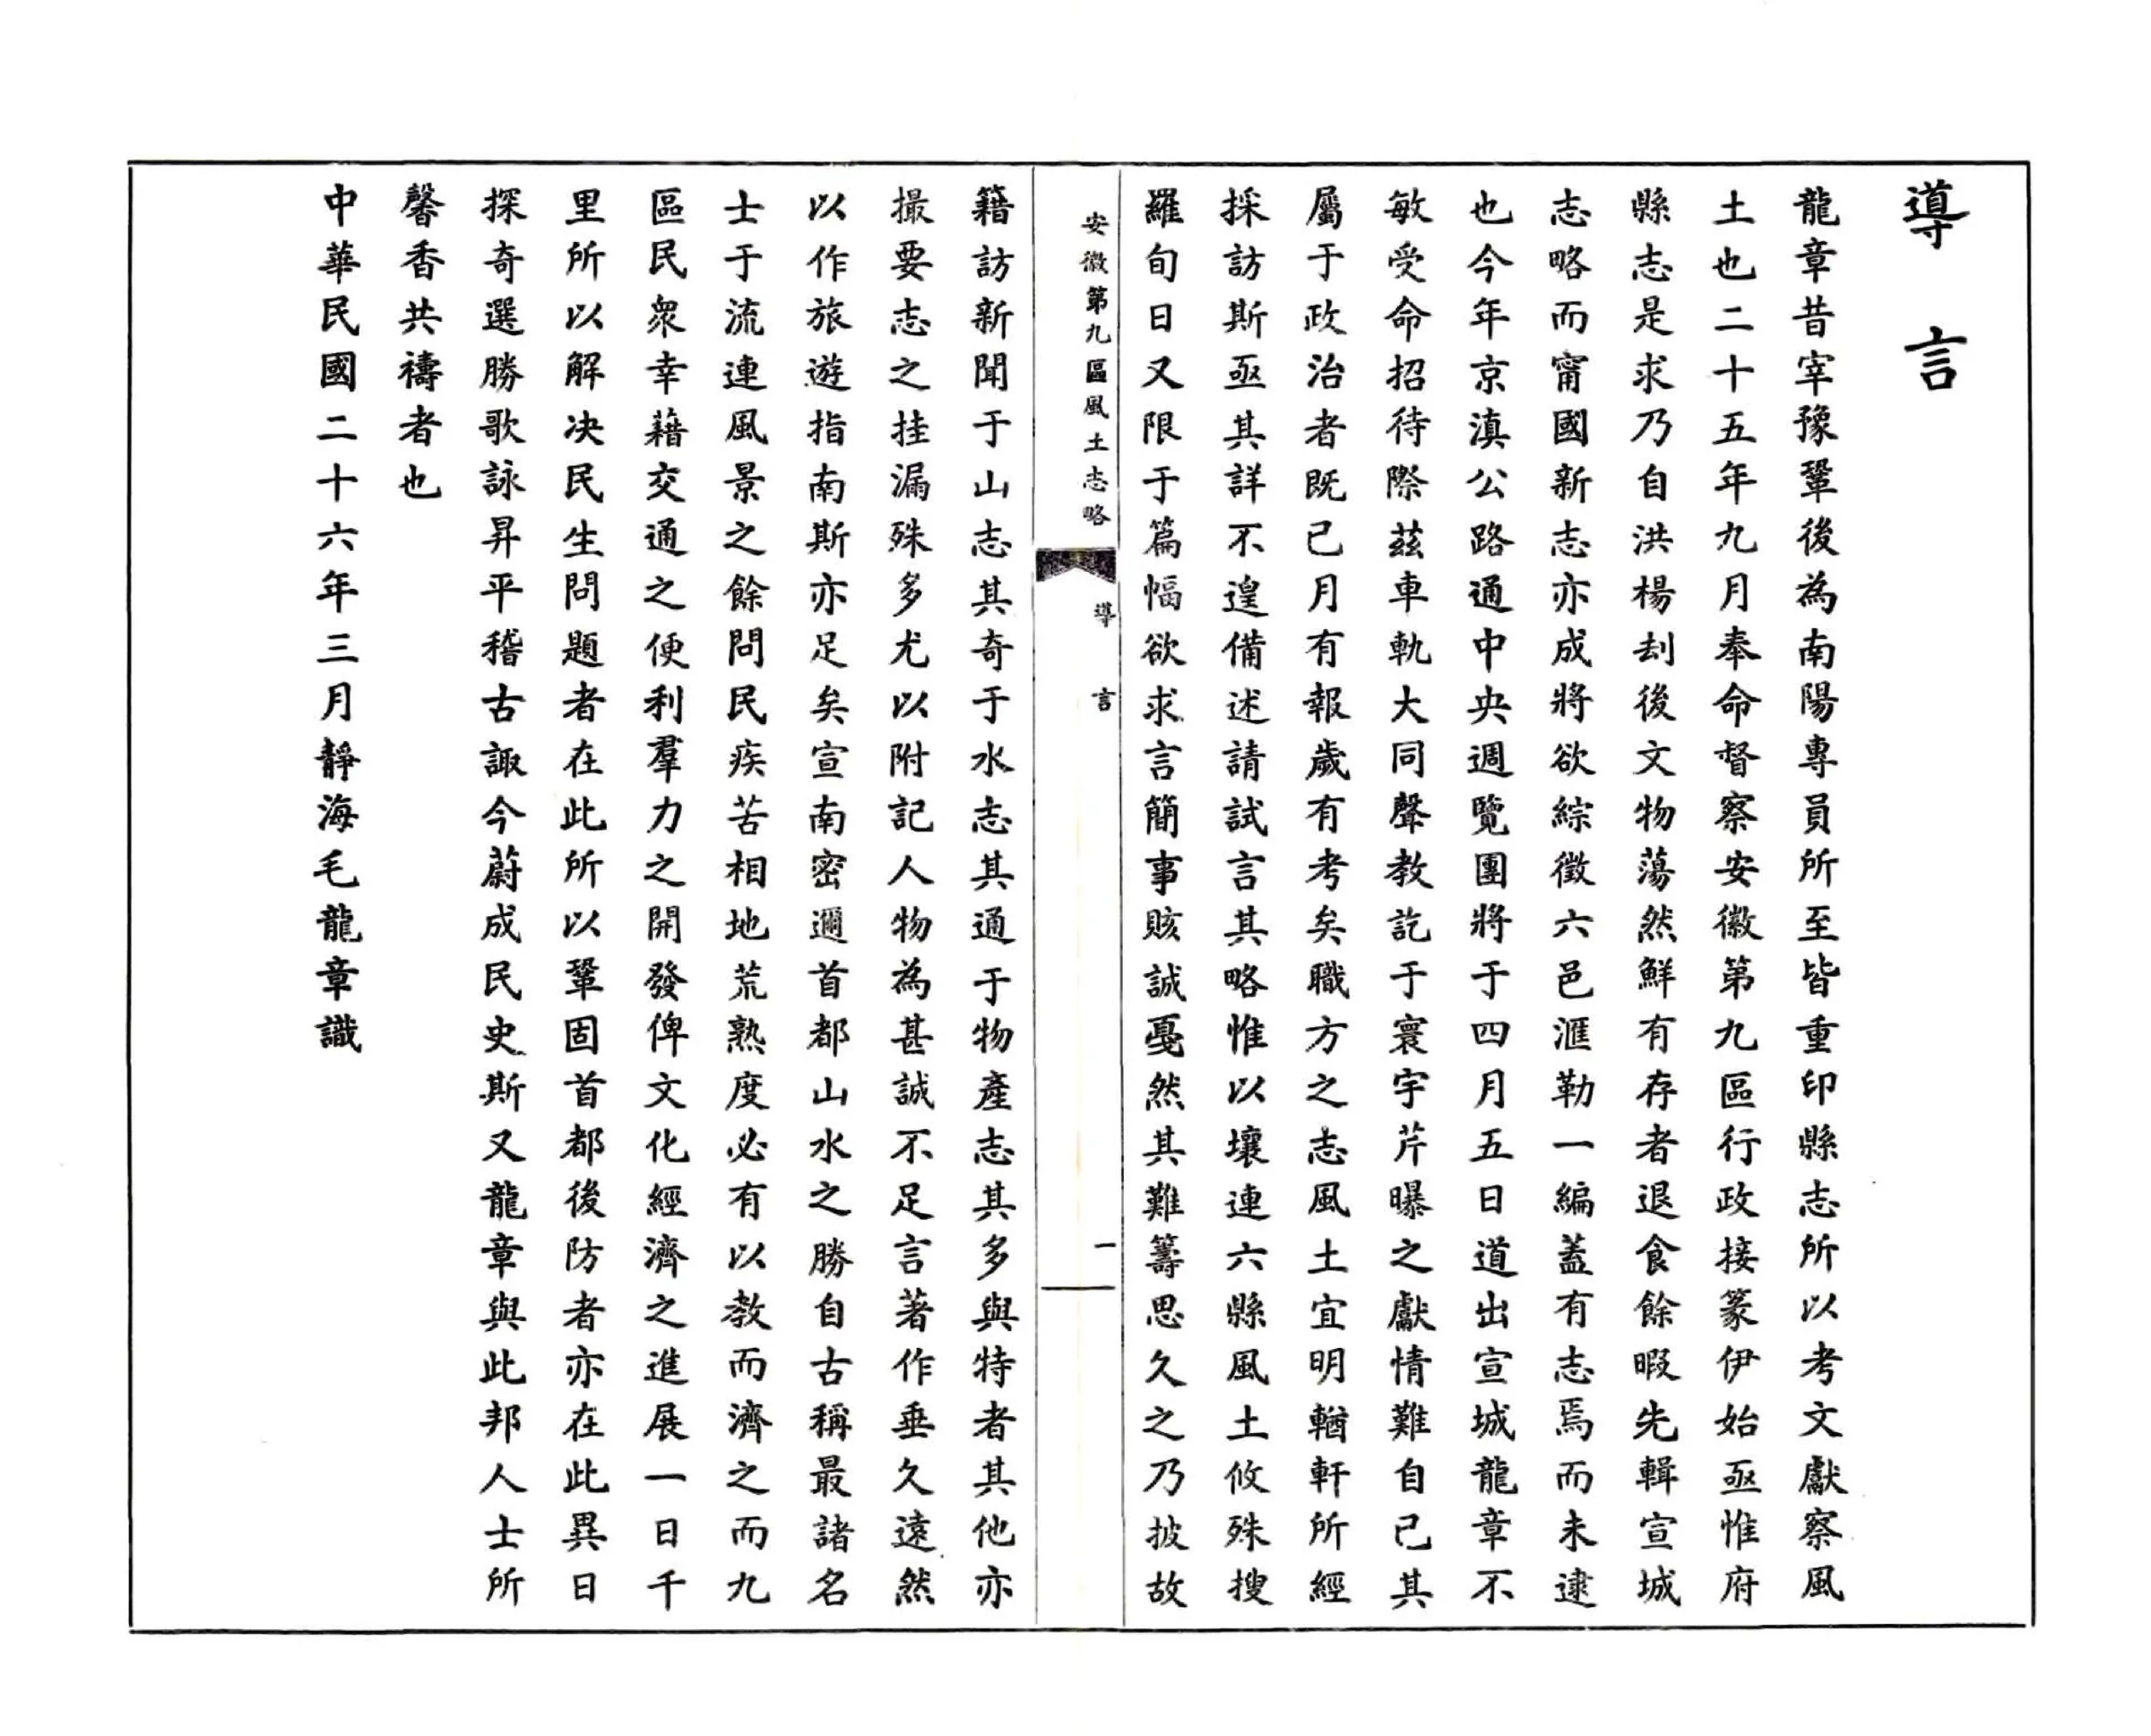 導言
龍章昔宰豫鞏後為南陽專員所至皆重印縣志所以考文獻察風
土也二十五年九月奉命督察安徽第九區行政接篆伊始亟惟府
縣志是求乃自洪楊刦後文物蕩然鮮有存者退食餘暇先輯宣城
志略而甯國新志亦成將欲綜徵六邑滙勒一編蓋有志焉而未逮
也今年京滇公路通中央週覽團將于四月五日道出宣城龍章不
敏受命招待際茲車軌大同聲教訖于寰宇芹曝之獻情難自已其
屬于政治者既已月有報歲有考矣職方之志風土宜明輶軒所經
採訪斯亟其詳不遑備述請試言其略惟以壤連六縣風土攸殊搜
羅旬日又限于篇幅欲求言簡事賅誠戞然其難籌思久之乃披故
安徽第九區風土志略
導言
一
籍訪新聞于山志其奇于水志其通于物產志其多與特者其他亦
撮要志之挂漏殊多尤以附記人物為甚誠不足言著作垂久遠然
以作旅遊指南斯亦足矣宣南密邇首都山水之勝自古稱最諸名
士于流連風景之餘問民疾苦相地荒熟度必有以教而濟之而九
區民眾幸藉交通之便利羣力之開發俾文化經濟之進展一日千
里所以解決民生問題者在此所以鞏固首都後防者亦在此異日
探奇選勝歌詠昇平稽古諏今蔚成民史斯又龍章與此邦人士所
馨香共禱者也
中華民國二十六年三月靜海毛龍章識